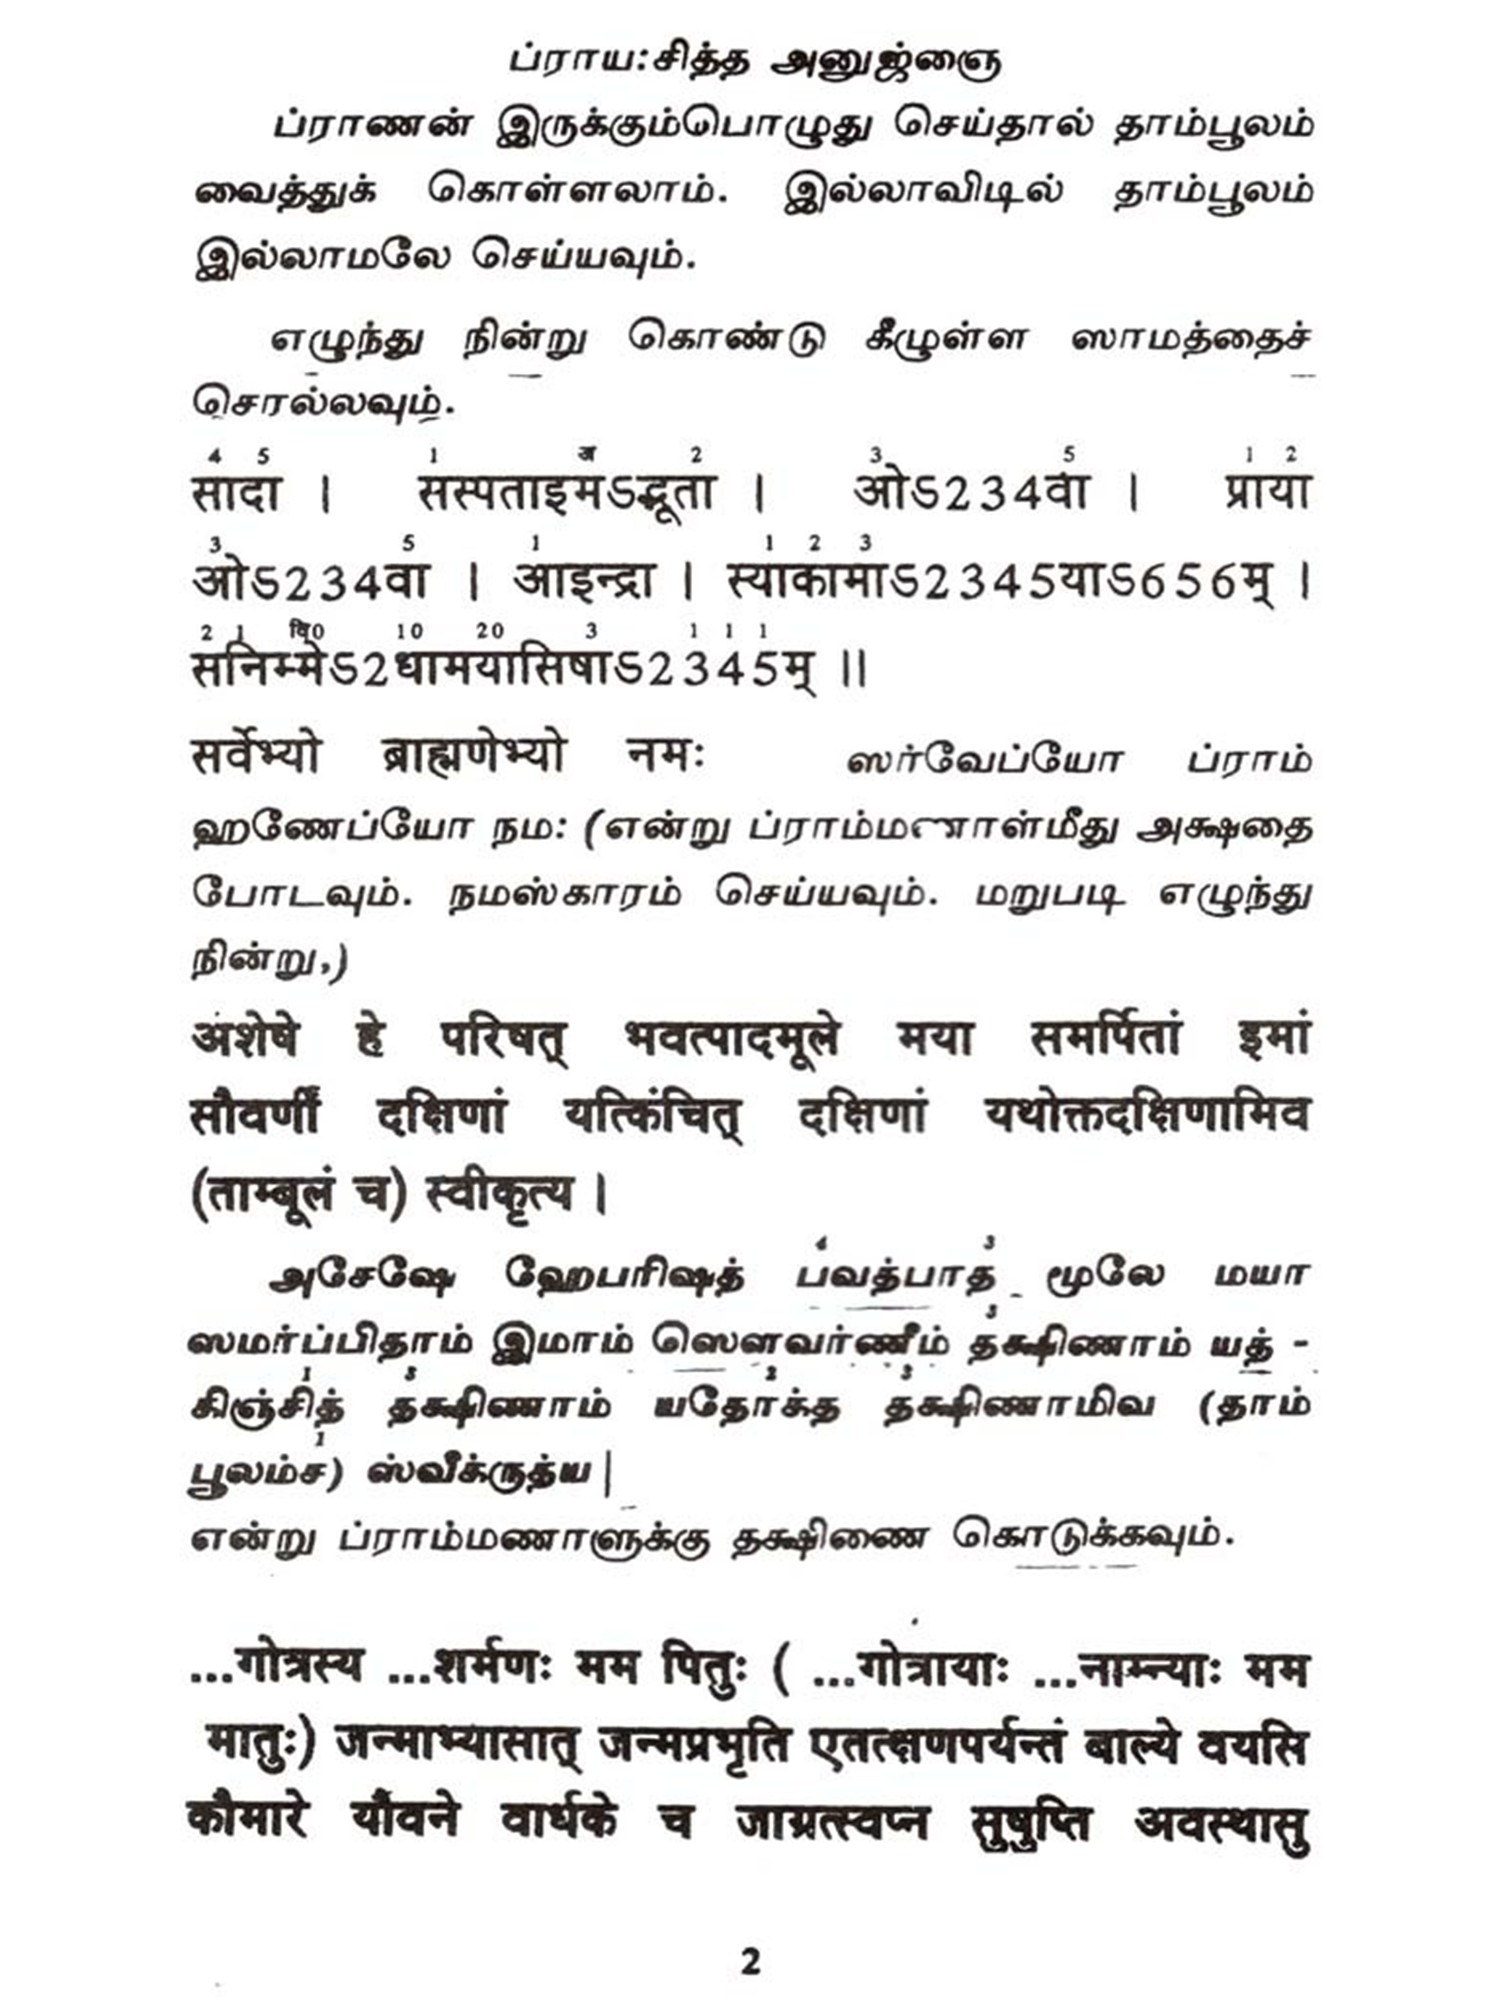 ப்ராய:சித்த அனுஜ்ஞை
ப்ராணன் இருக்கும்பொழுது செய்தால் தாம்பூலம்
வைத்துக் கொள்ளலாம். இல்லாவிடில் தாம்பூலம்
இல்லாமலே செய்யவும்.
எழுந்து நின்று கொண்டு கீழுள்ள ஸாமத்தைச்
சொல்லவும்.
4 5 1 अ 2 3 5 1 2
सादा । सस्पताइमऽद्भूता । ओऽ234वा । प्राया
3 5 1 1 2 3
ओऽ234वा । आइन्द्रा । स्याकामाऽ2345याऽ656म् ।
2 1 वि0 10 20 3 1 1 1
सनिम्मेऽ2धामयासिषाऽ2345म् ॥
सर्वेभ्यो ब्राह्मणेभ्यो नमः ஸர்வேப்யோ ப்ராம்
ஹணேப்யோ நம: (என்று ப்ராம்மணாள்மீது அக்ஷதை
போடவும். நமஸ்காரம் செய்யவும். மறுபடி எழுந்து
நின்று,)
अशेषे हे परिषत् भवत्पादमूले मया समर्पितां इमां
सौवर्णीं दक्षिणां यत्किंचित् दक्षिणां यथोक्तदक्षिणामिव
(ताम्बूलं च) स्वीकृत्य ।
4 3
அசேஷே ஹேபரிஷத் பவத்பாத மூலே மயா
3
ஸமர்ப்பிதாம் இமாம் ஸௌவர்ணீம் தக்ஷிணாம் யத் -
1 3 2 3
கிஞ்சித் தக்ஷிணாம் யதோக்த தக்ஷிணாமிவ (தாம்
1
பூலம்ச) ஸ்வீக்ருத்ய|
என்று ப்ராம்மணாளுக்கு தக்ஷிணை கொடுக்கவும்.
...गोत्रस्य ...शर्मणः मम पितुः ( ...गोत्रायाः ...नाम्न्याः मम
मातुः) जन्माभ्यासात् जन्मप्रभृति एतत्क्षणपर्यन्तं बाल्ये वयसि
कौमारे यौवने वार्धके च जाग्रत्स्वप्न सुषुप्ति अवस्थासु
2